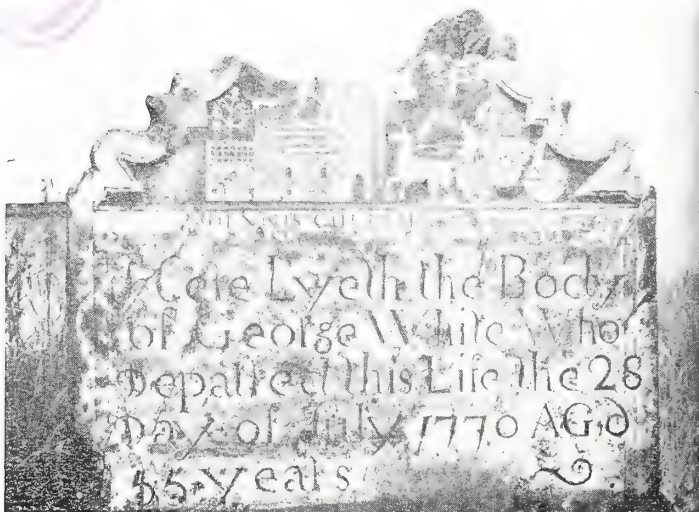 Here Lyeth the Body
of George White Who
Departed this Life the 28
Day of July 1770 AG,d
years